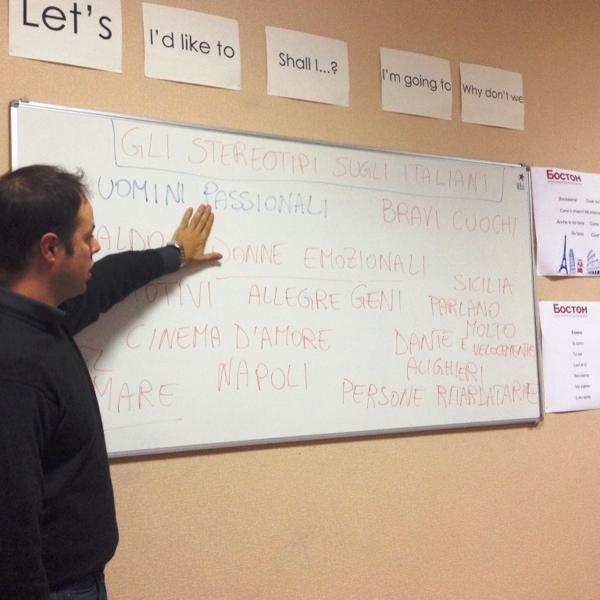 Let's
I'd like to
Shall I...?
I'm going to
Why don't we
GLI STEREOTIPI SUGLI ITALIANI
UOMINI PASSIONALI
BRAVI CUOCHI
DONNE EMOZIONALI
ALLEGRE GENI
SICILIA
PARLANO
MOLTO
VELOCEMENTE
CINEMA D'AMORE
DANTE E
ALIGHIERI
NAPOLI
MARE
PERSONE RITARDATARIE
БОСТОН
БОСТОН